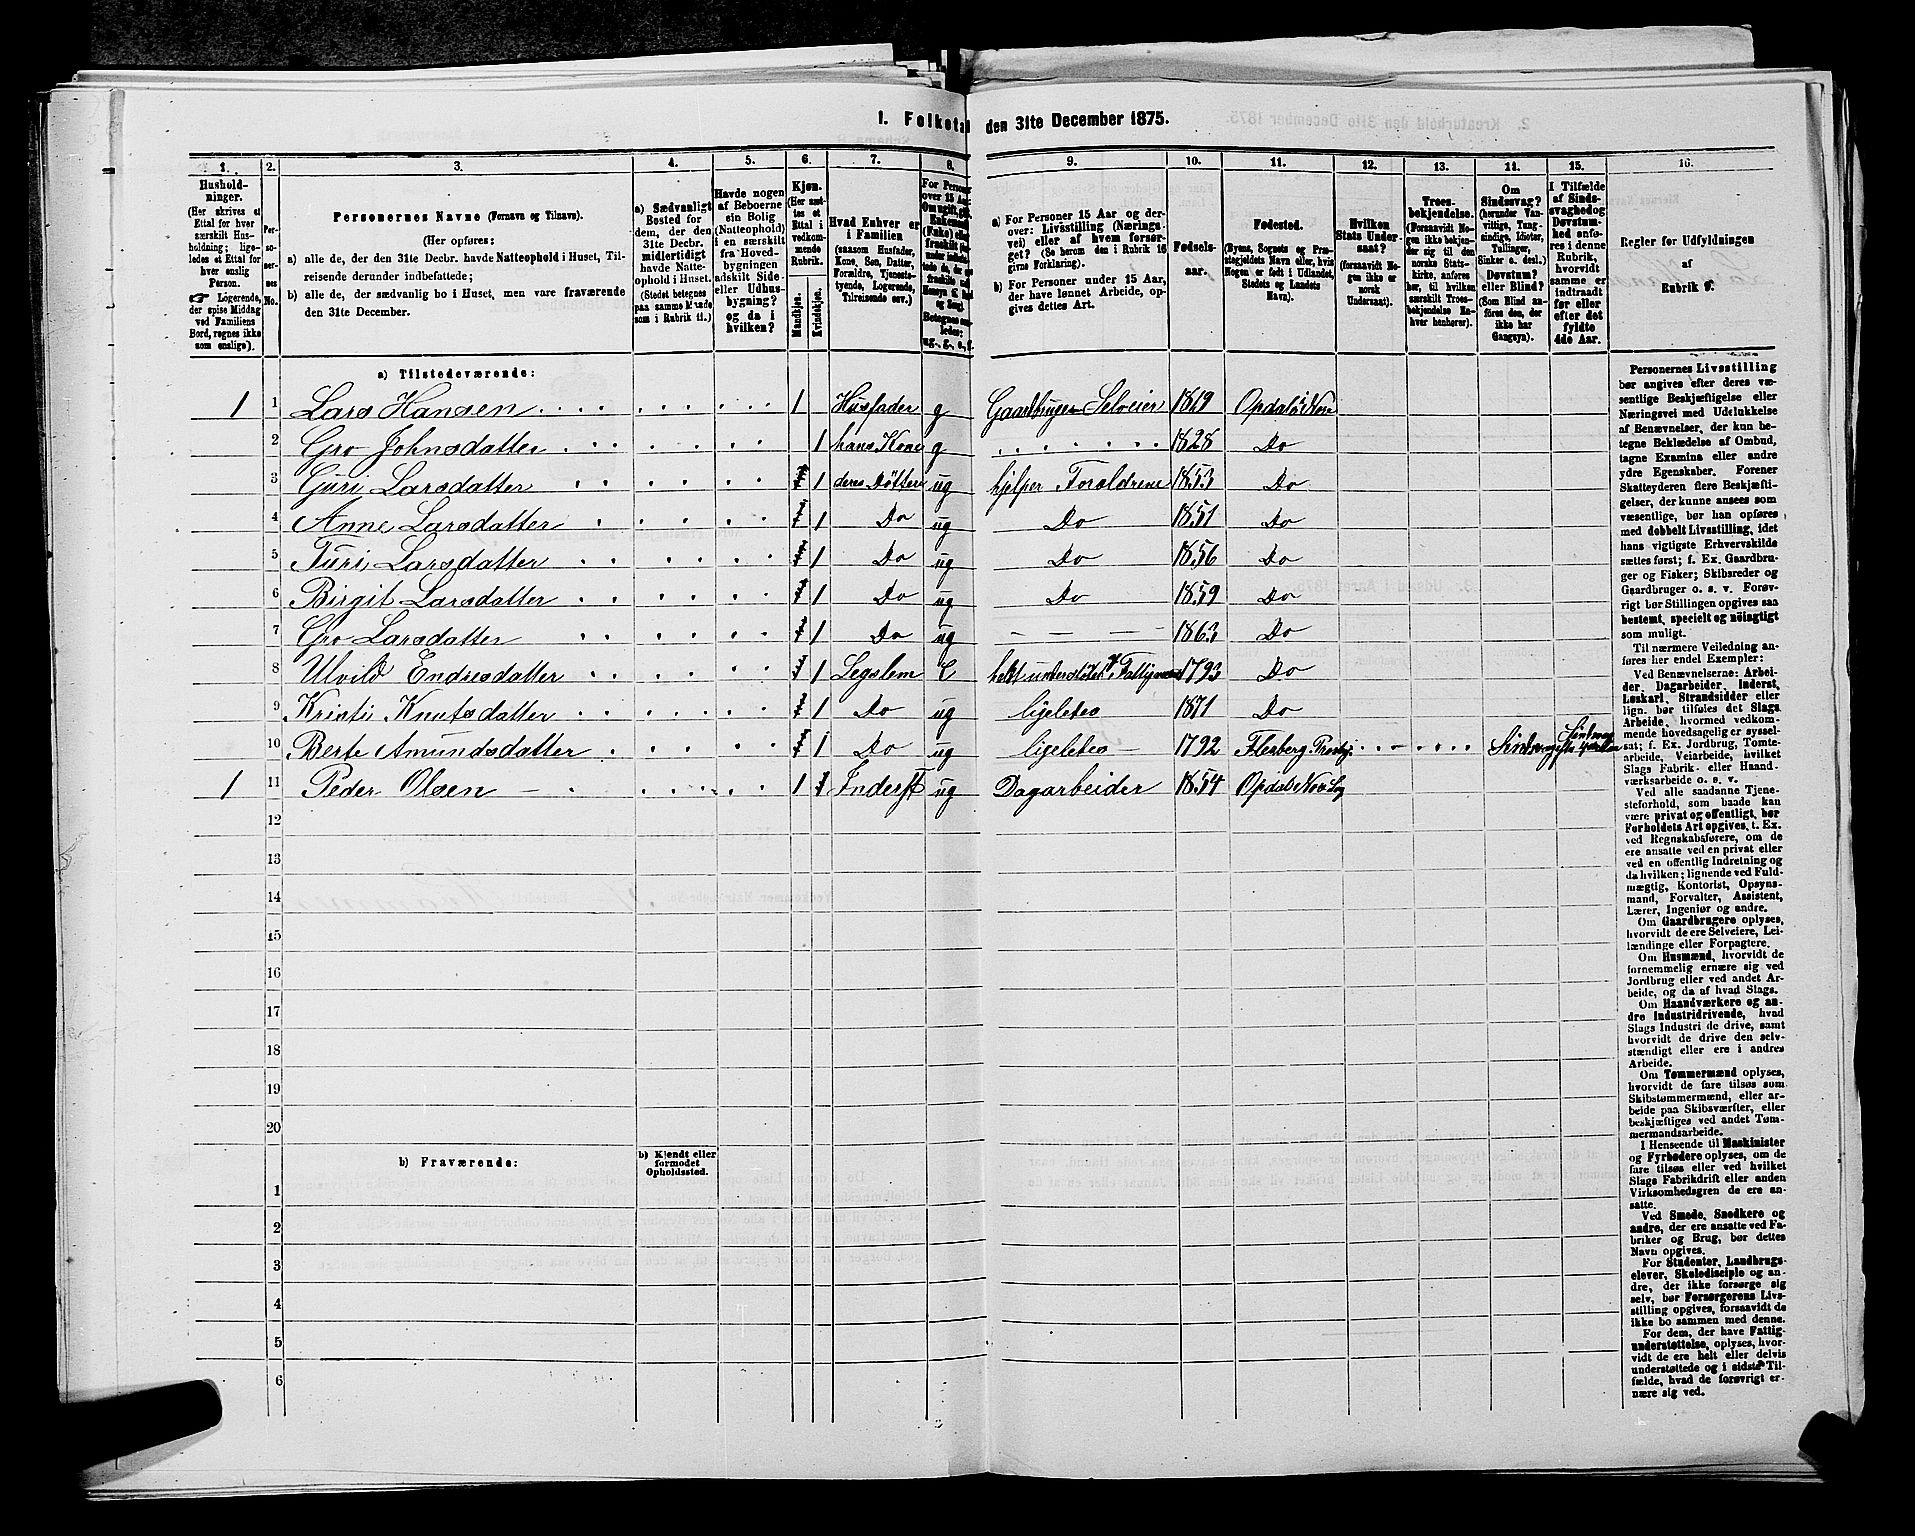 1. Folketal den 31te December 1875.
1.
Hushold-
ninger.
(Her skrives et
Ettal for hver
særskilt Hus-
holdning; lige-
ledes et Ettal for
hver enslig
Person.
☞ Logerende,
der spise Middag
ved Familiens
Bord, regnes ikke
som enslige).
2.
Per-
so-
ner-
nes
No.
3.
Personernes Navne (Fornavn og Tilnavn).
(Her opføres:
a) alle de, der den 31te Decbr. havde Natteophold i Huset, Til-
reisende derunder indbefattede;
b) alle de, der sædvanlig bo i Huset, men vare fraværende
den 31te December.
4.
a) Sædvanligt
Bosted for
dem, der den
31te Decbr.
midlertidigt
havde Natte-
ophold i Huset.
(Stedet betegnes
paa samme Maade
som i Rubrik 11.)
5.
Havde nogen
af Beboerne
sin Bolig
(Natteophold)
i en særskilt
fra Hoved-
bygningen
adskilt Side-
eller Udhus-
bygning?
og da i
hvilken?
6.
Kjøn.
(Her sæt-
tes et
Ettal i
vedkom-
mende
Rubrik.
Mandkjøn.
Kvindekjøn.
7.
Hvad Enhver er
i Familien
(saasom Husfader,
Kone, Søn, Datter,
Forældre, Tjeneste-
tyende, Logerende,
Tilreisende osv.)
8.
For Personer
over 15 Aar:
Betegnes saa-
ledes:
ug., g., e., f.
9.
a) For Personer 15 Aar og der-
over: Livsstilling (Nærings-
vei) eller af hvem forsør-
get? (Se herom den i Rubrik 16
givne Forklaring).
b) For Personer under 15 Aar,
der have lønnet Arbeide, op-
gives dettes Art.
10.
Fødsels-
aar.
11.
Fødested.
(Byens, Sognets og Præ-
stegjeldets Navn eller, hvis
Nogen er født i Udlandet,
Stedets og Landets
Navn).
12.
Hvilken
Stats Under-
saat?
(forsaavidt No-
gen ikke er
norsk
Undersaat).
13.
Troes-
bekjendelse.
(Forsaavidt No-
gen ikke bekjen-
der sig til den
norske Stats-
kirke, anføres
her, til hvilken
særskilt Troes-
bekjendelse En-
hver henhører).
14.
Om
Sindssvag?
(herunder Van-
vittige, Tung-
sindige, Idioter,
Tullinger,
Sinker o. desl.).
Døvstum?
eller Blind?
(Som Blind an-
føres den, der
ikke har
Gangsyn).
15.
I Tilfælde
af Sinds-
svaghed og
Døvstum-
hed anfø-
res i denne
Rubrik,
hvorvidt
samme er
indtraadt
før eller
efter det
fyldte
4de Aar.
16.
Regler for Udfyldningen
af
Rubrik 9.
a) Tilstedeværende:
1 1 Lars Hansen 1 Husfader g Gaardbruger Selveier 1819 Opdal i Nore
2 Gro Johnsdatter 1 hans Kone g 1828 Do
3 Guri Larsdatter 1 deres Døttere ug hjelper Forældrene 1853 Do
4 Anne Larsdatter 1 Do ug Do 1851 Do
5 Turi Larsdatter 1 Do ug Do 1856 Do
6 Birgit Larsdatter 1 Do ug Do 1859 Do
7 Gro Larsdatter 1 Do ug – – – 1863 Do
8 Ulvild Endresdatter 1 Legslem E helt understøtet Fattigvæs 1793 Do
9 Kristi Knutsdatter 1 Do ug ligeledes 1871 Do
10 Berte Amundsdatter 1 Do ug ligeledes – 1792 Flesberg
1 11 Peder Olsen – 1 Inderst ug Dagarbeider 1854 Opdal
12
13
14
15
16
17
18
19
20
b) Fraværende:
b) Kjendt eller
formodet
Opholdssted.
1
2
3
4
5
6
Personernes Livsstilling
bør angives efter deres væ-
sentlige Beskjæftigelse eller
Næringsvei med Udelukkelse
af Benævnelser, der kun be-
tegne Beklædelse af Ombud,
tagne Examina eller andre
ydre Egenskaber. Forener
Skatteyderen flere Beskjæfti-
gelser, der kunne ansees som
væsentlige, bør han opføres
med dobbelt Livsstilling, idet
hans vigtigste Erhvervskilde
sættes først; f. Ex. Gaardbru-
ger og Fisker; Skibsreder og
Gaardbruger o. s. v. Forøv-
rigt bør Stillingen opgives saa
bestemt, specielt og nøiagtigt
som muligt.
Til nærmere Veiledning an-
føres her endel Exempler:
Ved Benævnelserne: Arbei-
der, Dagarbeider, Inderst,
Løskarl, Strandsidder eller
lign. bør tilføies det Slags
Arbeide, hvormed vedkom-
mende hovedsagelig er syssel-
sat; f. Ex. Jordbrug, Tomte-
arbeide, Veiarbeide, hvilket
Slags Fabrik- eller Haand-
værksarbeide o. s. v.
Ved alle saadanne Tjene-
steforhold, som baade kan
være privat og offentligt, bør
Forholdets Art opgives, t. Ex.
ved Regnskabsførere, om de
ere ansatte ved en privat eller
ved en offentlig Indretning og
da hvilken; lignende ved Fuld-
mægtig, Kontorist, Opsyns-
mand, Forvalter, Assistent,
Lærer, Ingeniør og andre.
Om Gaardbrugere oplyses,
hvorvidt de ere Selveiere, Lei-
lændinge eller Forpagtere.
Om Husmænd, hvorvidt de
fornemmelig ernære sig ved
Jordbrug eller ved andet Ar-
beide, og da af hvad Slags.
Om Haandværkere og an-
dre Industridrivende, hvad
Slags Industri de drive, samt
hvorvidt de drive den selv-
stændigt eller ere i andres
Arbeide.
Om Tømmermænd oplyses,
hvorvidt de fare tilsøs som
Skibstømmermænd, eller ar-
beide paa Skibsværfter, eller
beskjæftiges ved andet Tøm-
mermandsarbeide.
I Henseende til Maskinister
og Fyrbødere oplyses, om de
fare tilsøs eller ved hvilket
Slags Fabrikdrift eller anden
Virksomhedsgren de ere an-
satte.
Ved Smede, Snedkere og
andre, der ere ansatte ved Fa-
briker og Brug, bør dettes
Navn opgives.
For Studenter, Landbrugs-
elever, Skoledisciple og an-
dre, der ikke forsørge sig
selv, bør Forsørgerens Livs-
stilling opgives, forsaavidt de
ikke bo sammen med denne.
For dem, der have Fattig-
understøttelse, oplyses, hvor-
vidt de ere helt eller delvis
understøttede og i sidste Til-
fælde, hvad de forøvrigt er-
nære sig ved.